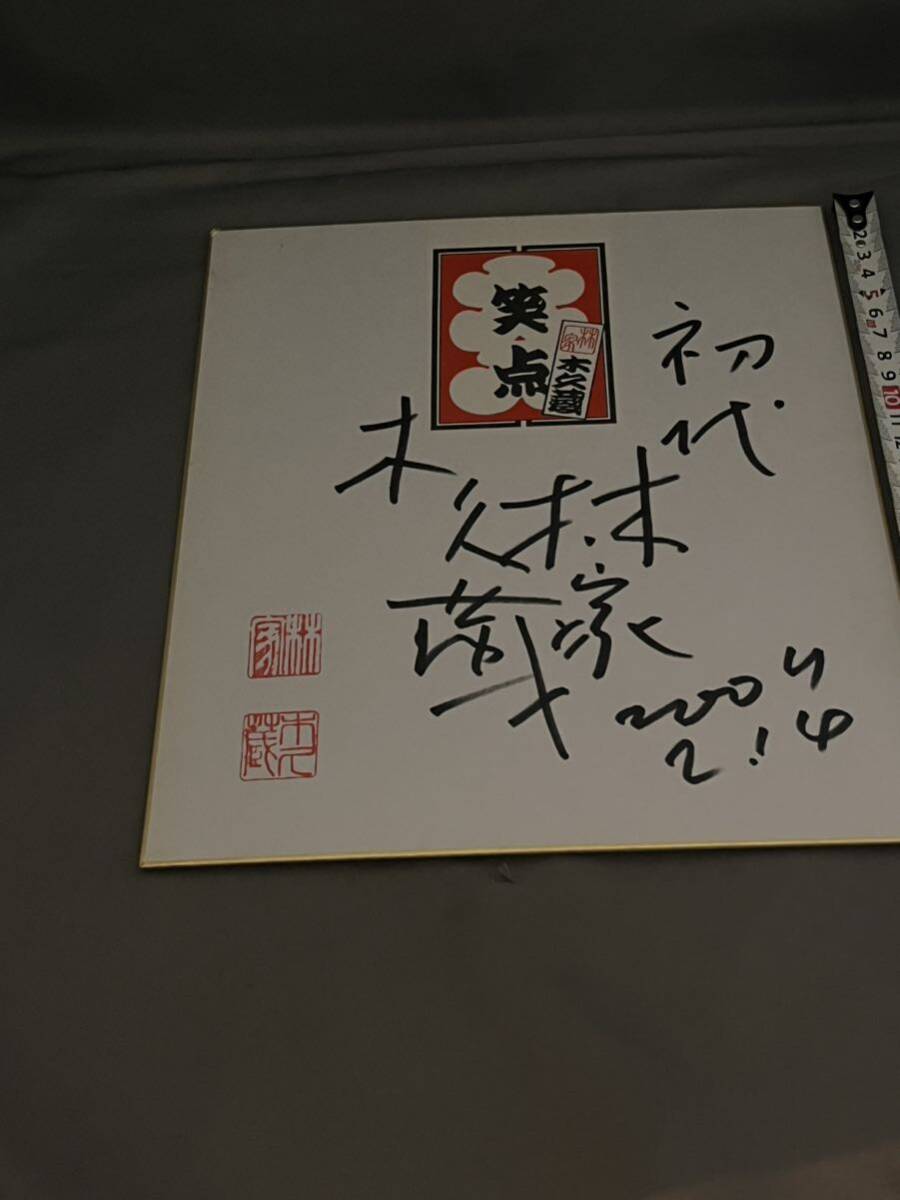 笑点
林家
木久蔵
初代
林家
木久蔵
2004
2.14
林家
木久蔵
2 3 4 5 6 7 8 9 10 11 12